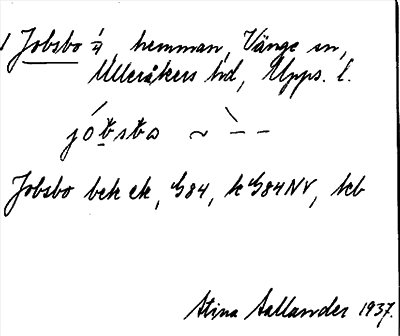 Jobsbo 1/4, hemman, Vänge sn,
Ulleråkers hd, Upps. l.
Jobsbo bek ek, G84, k G84NV, kb
Stina Sallander 1937.